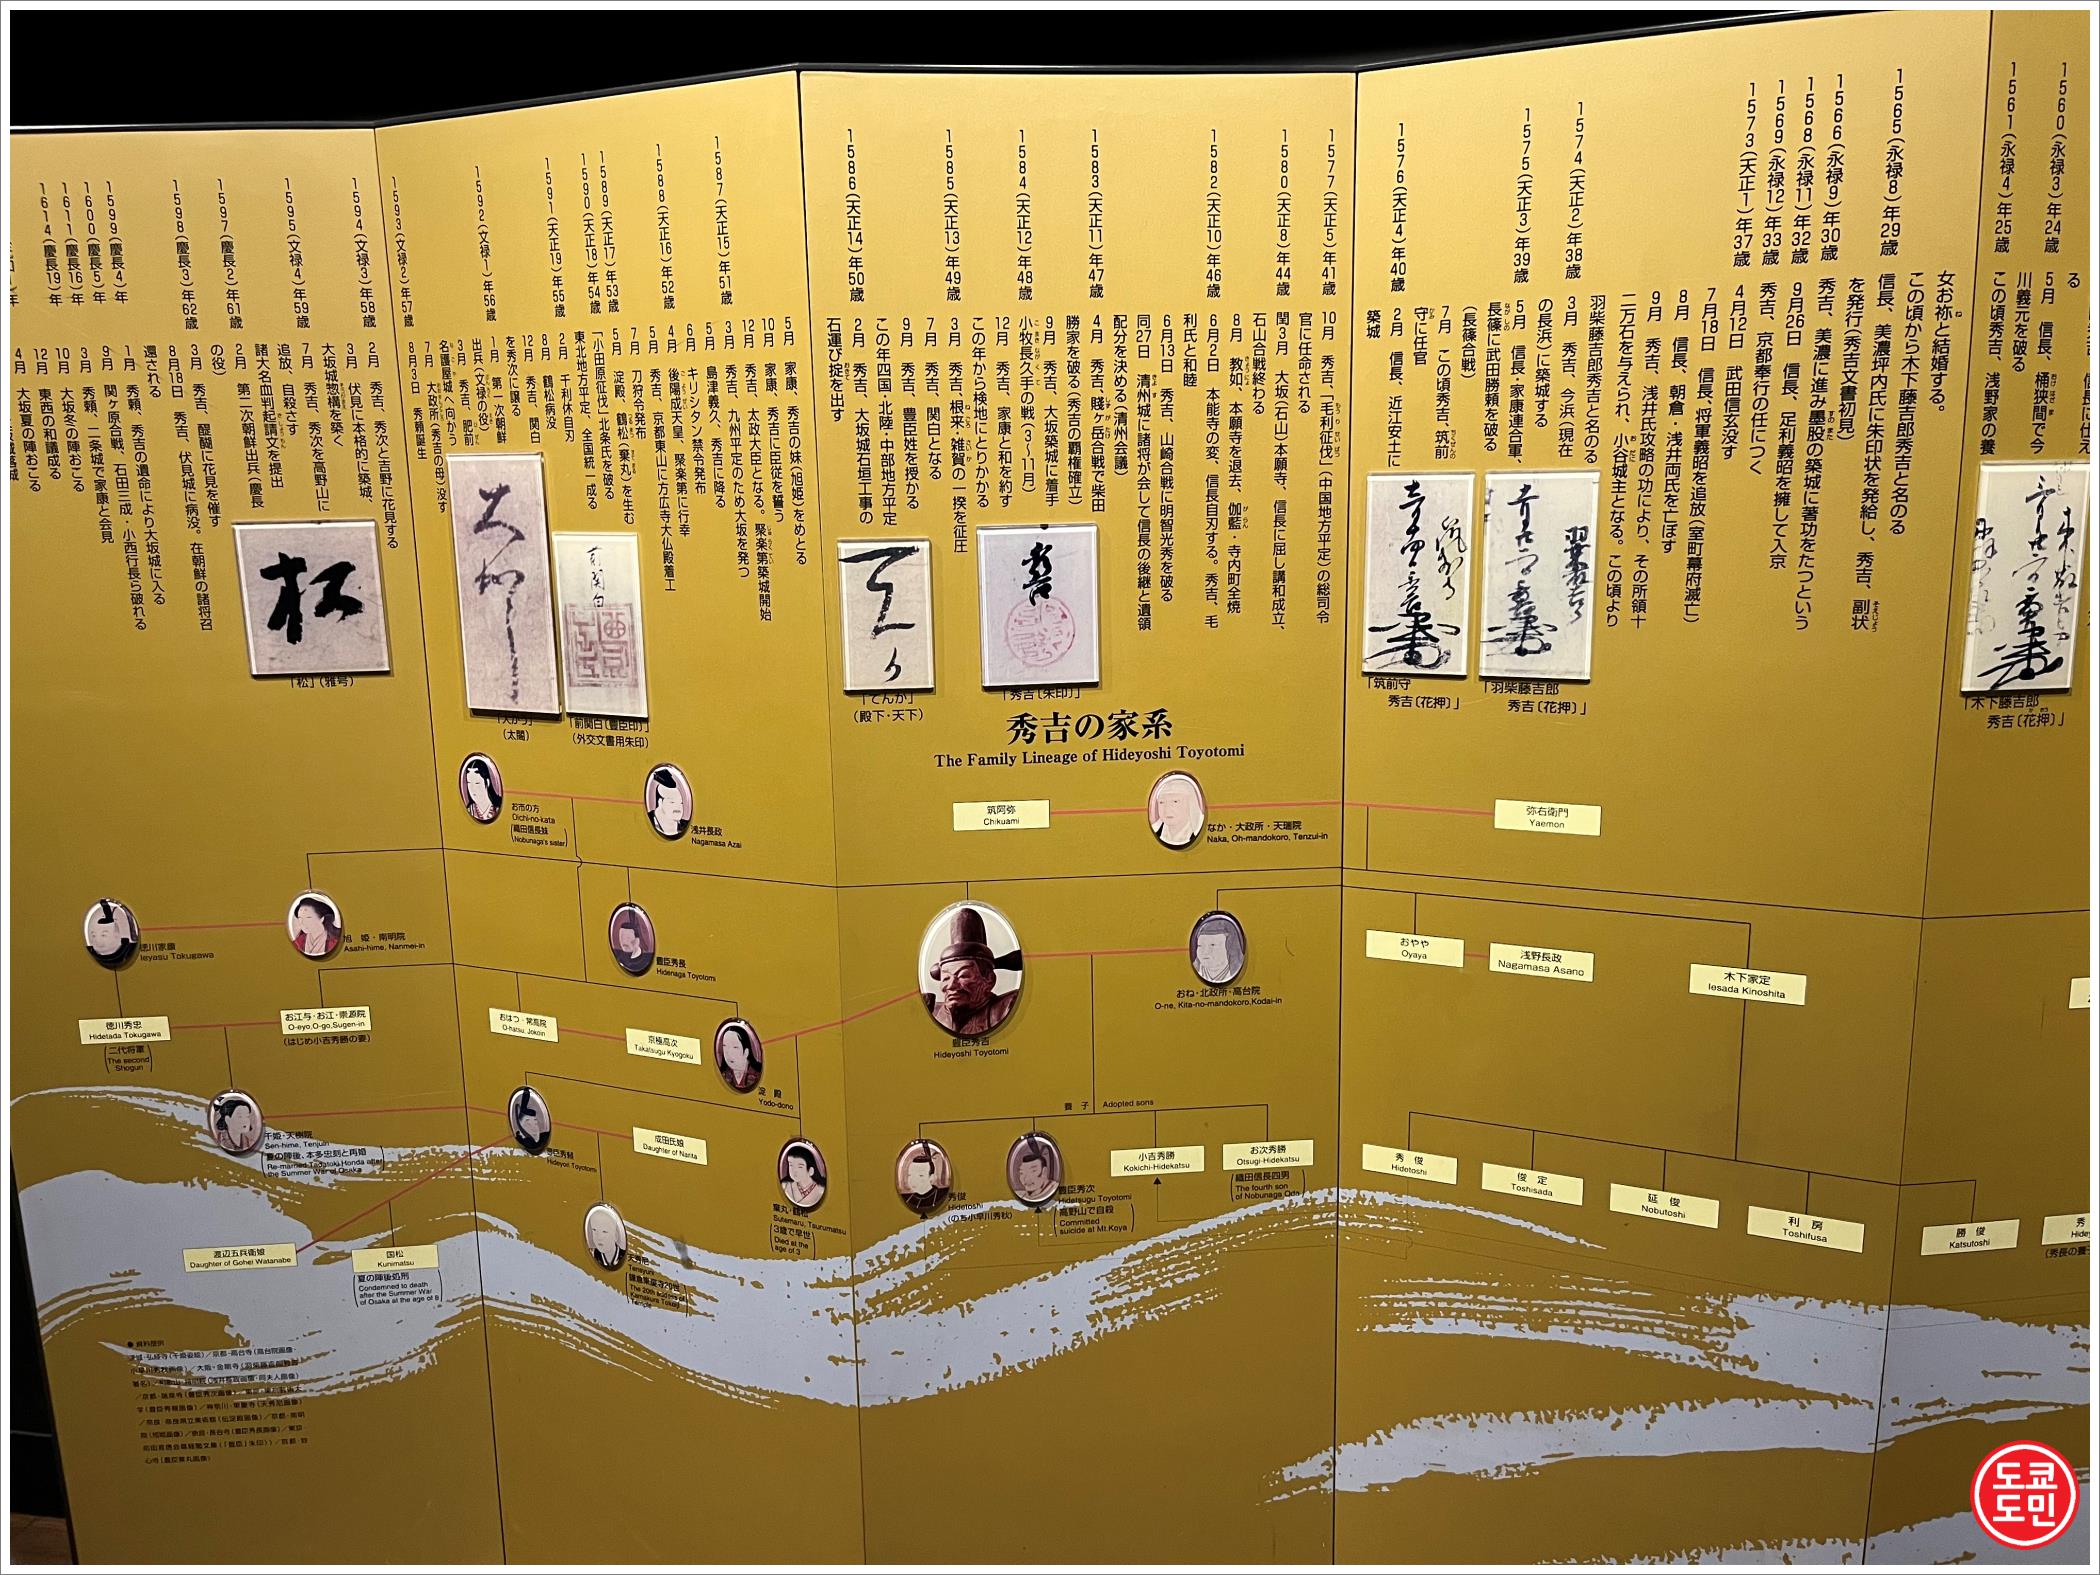 1560（永禄3）年24歳
5月　信長、桶狭間で今
川義元を破る
1561（永禄4）年25歳
この頃秀吉、浅野家の養
女お祢と結婚する。
この頃から木下藤吉郎秀吉と名のる
1565（永禄8）年29歳
信長、美濃坪内氏に朱印状を発給し、秀吉、副状
を発行（秀吉文書初見）
1566（永禄9）年30歳
秀吉、美濃に進み墨股の築城に著功をたつという
1568（永禄11）年32歳
9月26日　信長、足利義昭を擁して入京
1569（永禄12）年33歳
秀吉、京都奉行の任につく
1573（天正1）年37歳
4月12日　武田信玄没す
7月18日　信長、将軍義昭を追放（室町幕府滅亡）
8月　信長、朝倉・浅井両氏を亡ぼす
9月　秀吉、浅井氏攻略の功により、その所領十
二万石を与えられ、小谷城主となる。この頃より
羽柴藤吉郎秀吉と名のる
1574（天正2）年38歳
3月　秀吉、今浜（現在
の長浜）に築城する
1575（天正3）年39歳
5月　信長・家康連合軍、
長篠に武田勝頼を破る
（長篠合戦）
7月　この頃秀吉、筑前
守に任官
1576（天正4）年40歳
2月　信長、近江安土に
築城
1577（天正5）年41歳
10月　秀吉、「毛利征伐」（中国地方平定）の総司令
官に任命される
1580（天正8）年44歳
閏3月　大坂（石山）本願寺、信長に屈し講和成立、
石山合戦終わる
8月　教如、本願寺を退去、伽藍・寺内町全焼
1582（天正10）年46歳
6月2日　本能寺の変、信長自刃する。秀吉、毛
利氏と和睦
6月13日　秀吉、山崎合戦に明智光秀を破る
同27日　清州城に諸将が会して信長の後継と遺領
配分を決める（清州会議）
1583（天正11）年47歳
4月　秀吉、賤ヶ岳合戦で柴田
勝家を破る（秀吉の覇権確立）
9月　秀吉、大坂築城に着手
1584（天正12）年48歳
小牧長久手の戦（3〜11月）
12月　秀吉、家康と和を約す
この年から検地にとりかかる
1585（天正13）年49歳
3月　秀吉、根来・雑賀の一揆を征圧
7月　秀吉、関白となる
9月　秀吉、豊臣姓を授かる
この年四国・北陸・中部地方平定
1586（天正14）年50歳
2月　秀吉、大坂城石垣工事の
石運び掟を出す
5月　家康、秀吉の妹（旭姫）をめとる
10月　家康、秀吉に臣従を誓う
12月　秀吉、太政大臣となる。聚楽第築城開始
1587（天正15）年51歳
3月　秀吉、九州平定のため大坂を発つ
5月　島津義久、秀吉に降る
6月　キリシタン禁令発布
1588（天正16）年52歳
4月　後陽成天皇、聚楽第に行幸
5月　秀吉、京都東山に方広寺大仏殿着工
7月　刀狩令発布
1589（天正17）年53歳
5月　淀殿、鶴松（棄丸）を生む
1590（天正18）年54歳
「小田原征伐」北条氏を破る
東北地方平定、全国統一成る
1591（天正19）年55歳
2月　千利休自刃
8月　鶴松病没
12月　秀吉、関白
を秀次に譲る
1592（文禄1）年56歳
1月　第一次朝鮮
出兵（文禄の役）
3月　秀吉、肥前
名護屋城へ向かう
7月　大政所（秀吉の母）没す
1593（文禄2）年57歳
8月3日　秀頼誕生
1594（文禄3）年58歳
2月　秀吉、秀次と吉野に花見する
3月　伏見に本格的に築城、
大坂城惣構を築く
1595（文禄4）年59歳
7月　秀吉、秀次を高野山に
追放、自殺さす
諸大名血判起請文を提出
1597（慶長2）年61歳
2月　第二次朝鮮出兵（慶長
の役）
1598（慶長3）年62歳
3月　秀吉、醍醐に花見を催す
8月18日　秀吉、伏見城に病没。在朝鮮の諸将召
還される
1599（慶長4）年
1月　秀頼、秀吉の遺命により大坂城に入る
1600（慶長5）年
9月　関ヶ原合戦、石田三成・小西行長ら破れる
1611（慶長16）年
3月　秀頼、二条城で家康と会見
1614（慶長19）年
10月　大坂冬の陣おこる
12月　東西の和議成る
4月　大坂夏の陣おこる
「木下藤吉郎
秀吉〔花押〕」
「羽柴藤吉郎
秀吉〔花押〕」
「筑前守
秀吉〔花押〕」
「秀吉〔朱印〕」
「てんか」
（殿下・天下）
「前関白〔豊臣印〕」
（外交文書用朱印）
「大かう」
（太閤）
松
「松」（雅号）
秀吉の家系
The Family Lineage of Hideyoshi Toyotomi
お市の方
Oichi-no-kata
織田信長妹
Nobunaga's sister
浅井長政
Nagamasa Azai
筑阿弥
Chikuami
なか・大政所・天瑞院
Naka, Oh-mandokoro, Tenzui-in
弥右衛門
Yaemon
徳川家康
Ieyasu Tokugawa
旭 姫・南明院
Asahi-hime, Nanmei-in
豊臣秀長
Hidenaga Toyotomi
豊臣秀吉
Hideyoshi Toyotomi
おね・北政所・高台院
O-ne, Kita-no-mandokoro,Kodai-in
おやや
Oyaya
浅野長政
Nagamasa Asano
木下家定
Iesada Kinoshita
徳川秀忠
Hidetada Tokugawa
二代将軍
The second
Shogun
お江与・お江・崇源院
O-eyo,O-go,Sugen-in
（はじめ小吉秀勝の妻）
おはつ・常高院
O-hatsu, Jokoin
京極高次
Takatsugu Kyogoku
淀 殿
Yodo-dono
養 子 Adopted sons
千姫・天樹院
Sen-hime, Tenjuin
夏の陣後、本多忠刻と再婚
Re-married Tadatoki Honda after
the Summer War of Osaka
豊臣秀頼
Hideyori Toyotomi
成田氏娘
Daughter of Narita
棄丸・鶴松
Sutemaru, Tsurumatsu
3歳で早世
Died at the
age of 3
秀俊
Hidetoshi
（のち小早川秀秋）
豊臣秀次
Hidetsugu Toyotomi
高野山で自殺
Committed
suicide at Mt.Koya
小吉秀勝
Kokichi-Hidekatsu
お次秀勝
Otsugi-Hidekatsu
織田信長四男
The fourth son
of Nobunaga Oda
秀 俊
Hidetoshi
俊 定
Toshisada
延 俊
Nobutoshi
利 房
Toshifusa
勝 俊
Katsutoshi
渡辺五兵衛娘
Daughter of Gohei Watanabe
国松
Kunimatsu
夏の陣後処刑
Condemned to death
after the Summer War
of Osaka at the age of 8
天秀尼
Tensyuni
鎌倉東慶寺20世
The 20th
Kamakura Tokeiji
Temple
●資料提供
도쿄
도민